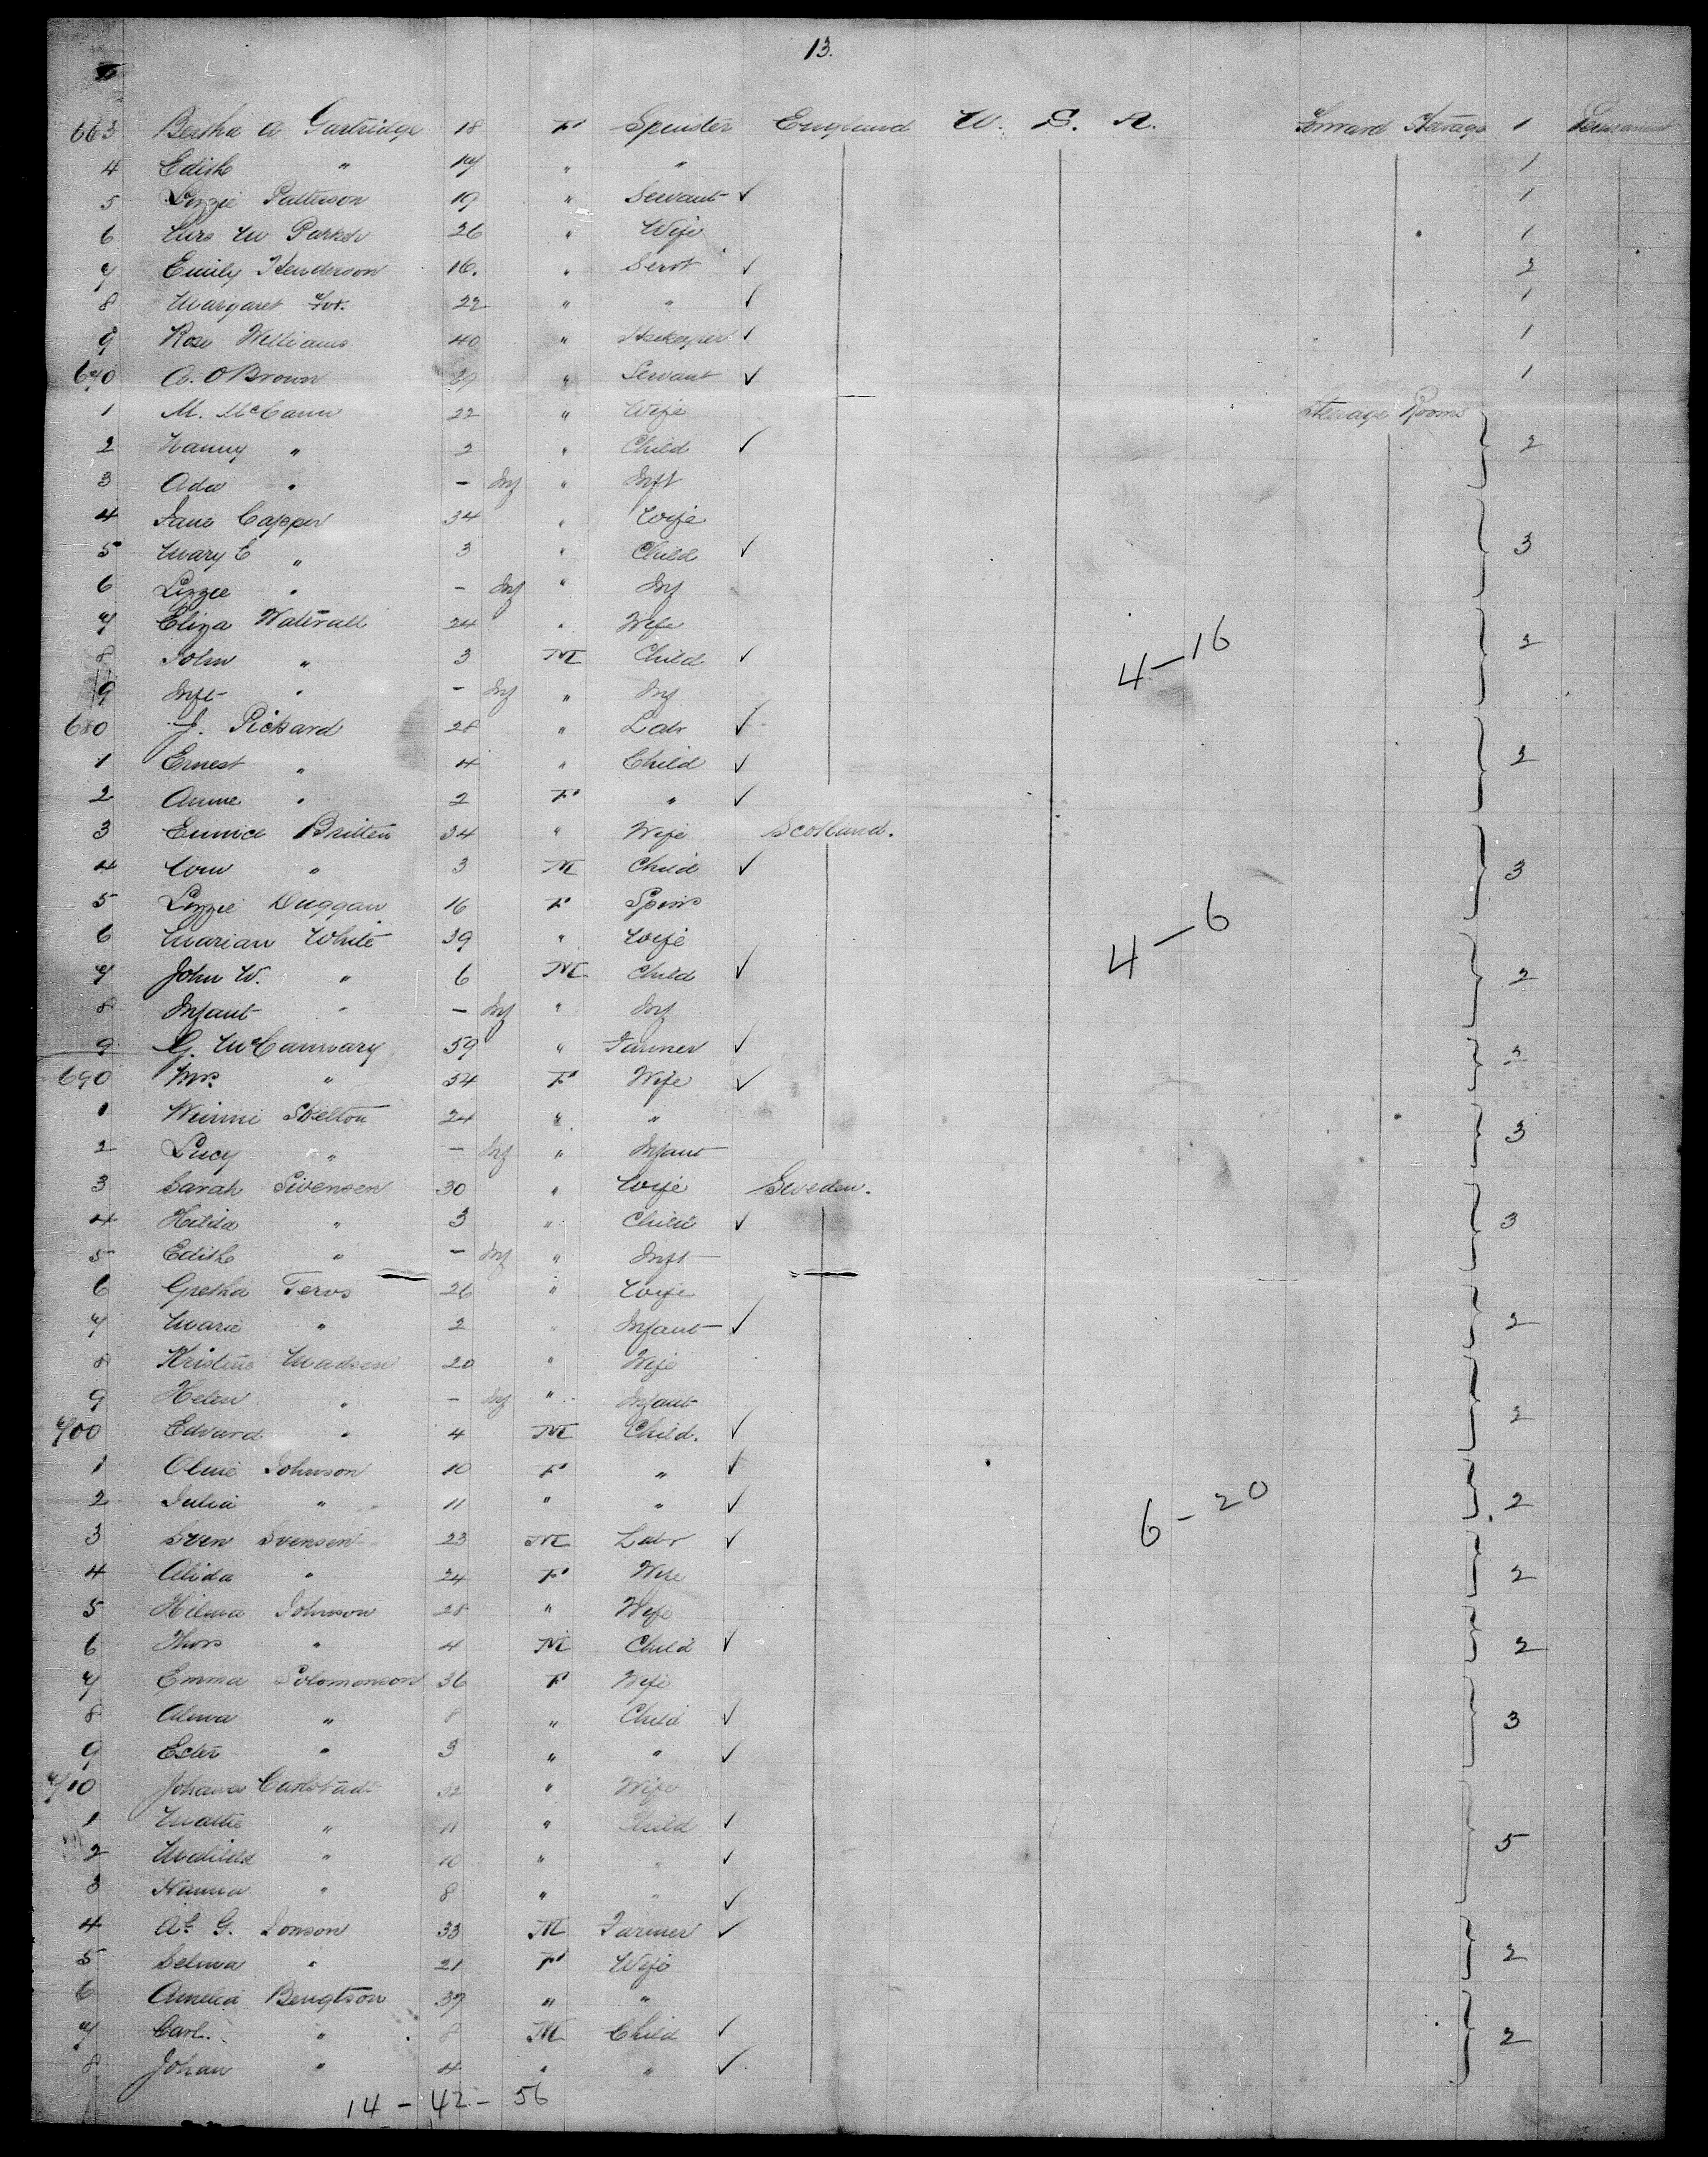 13.
663 Bertha A Gartridge 18 F Spinster England U. S. A. Forward Steerage 1 Permanent
4 Edith " 17 " " 1
5 Lizzie Patterson 19 " Servant ✓ 1
6 Mrs W Parker 26 " Wife 1
7 Emily Henderson 16. " Servt ✓ 2
8 Margaret Fox. 22 " " ✓ 1
9 Rose Williams 40 " Hsekeeper ✓ 1
670 A. O Brown 29 " Servant ✓ 1
1 M. McCann 22 " Wife Steerage Rooms
2 Nanny " 2 " Child ✓ 2
3 Ada " - Inf " Inft
4 Jane Capper 34 " Wife
5 Mary E " 3 " Child ✓ 3
6 Lizzie " - Inf " Inf
7 Eliza Waterall 24 " Wife 2
8 John " 3 M Child ✓ 4-16
9 Inft " - Inf " Inf
680 J. Pickard 28 " Labr ✓
1 Ernest " 4 " Child ✓ 2
2 Annie " 2 F " ✓
3 Eunice Britten 34 " Wife Scotland.
4 Tom " 3 M Child ✓ 3
5 Lizzie Duggan 16 F Spins
6 Marian White 39 " Wife 4-6
7 John W. " 6 M Child ✓ 2
8 Infant " - Inf " Inf
9 G. McCannary 59 " Farmer ✓ 2
690 Mrs. " 54 F Wife ✓
1 Winni Skelton 24 " " 3
2 Lucy " - Inf " Infant
3 Sarah Sivensen 30 " Wife Sweden.
4 Hilda " 3 " Child ✓ 3
5 Edith " - Inf " Inft
6 Gretha Tervs 26 " Wife
7 Marie " 2 " Infant ✓ 2
8 Kristine Madsen 20 " Wife
9 Helen " - Inf " Infant 2
700 Edvard " 4 M Child. ✓
1 Olivie Johnson 10 F " ✓
2 Julia " 11 " " ✓ 6-20 2
3 Sven Svensen 23 M Labr ✓
4 Alida " 24 F Wife 2
5 Hilma Johnson 28 " Wife
6 Thors " 4 M Child ✓ 2
7 Emma Solomonson 36 F Wife
8 Alma " 8 " Child ✓ 3
9 Ester " 3 " " ✓
710 Johana Carlstadt 32 " Wife
1 Mattie " 11 " Child ✓
2 Matilda " 10 " " ✓ 5
3 Hanna " 8 " " ✓
4 G. Jonson 33 M Farmer ✓
5 Selma " 21 F Wife 2
6 Amelia Bengtson 39 " "
7 Carl. " 8 M Child ✓ 2
8 Johan " 4 " " ✓
14 - 42 - 56